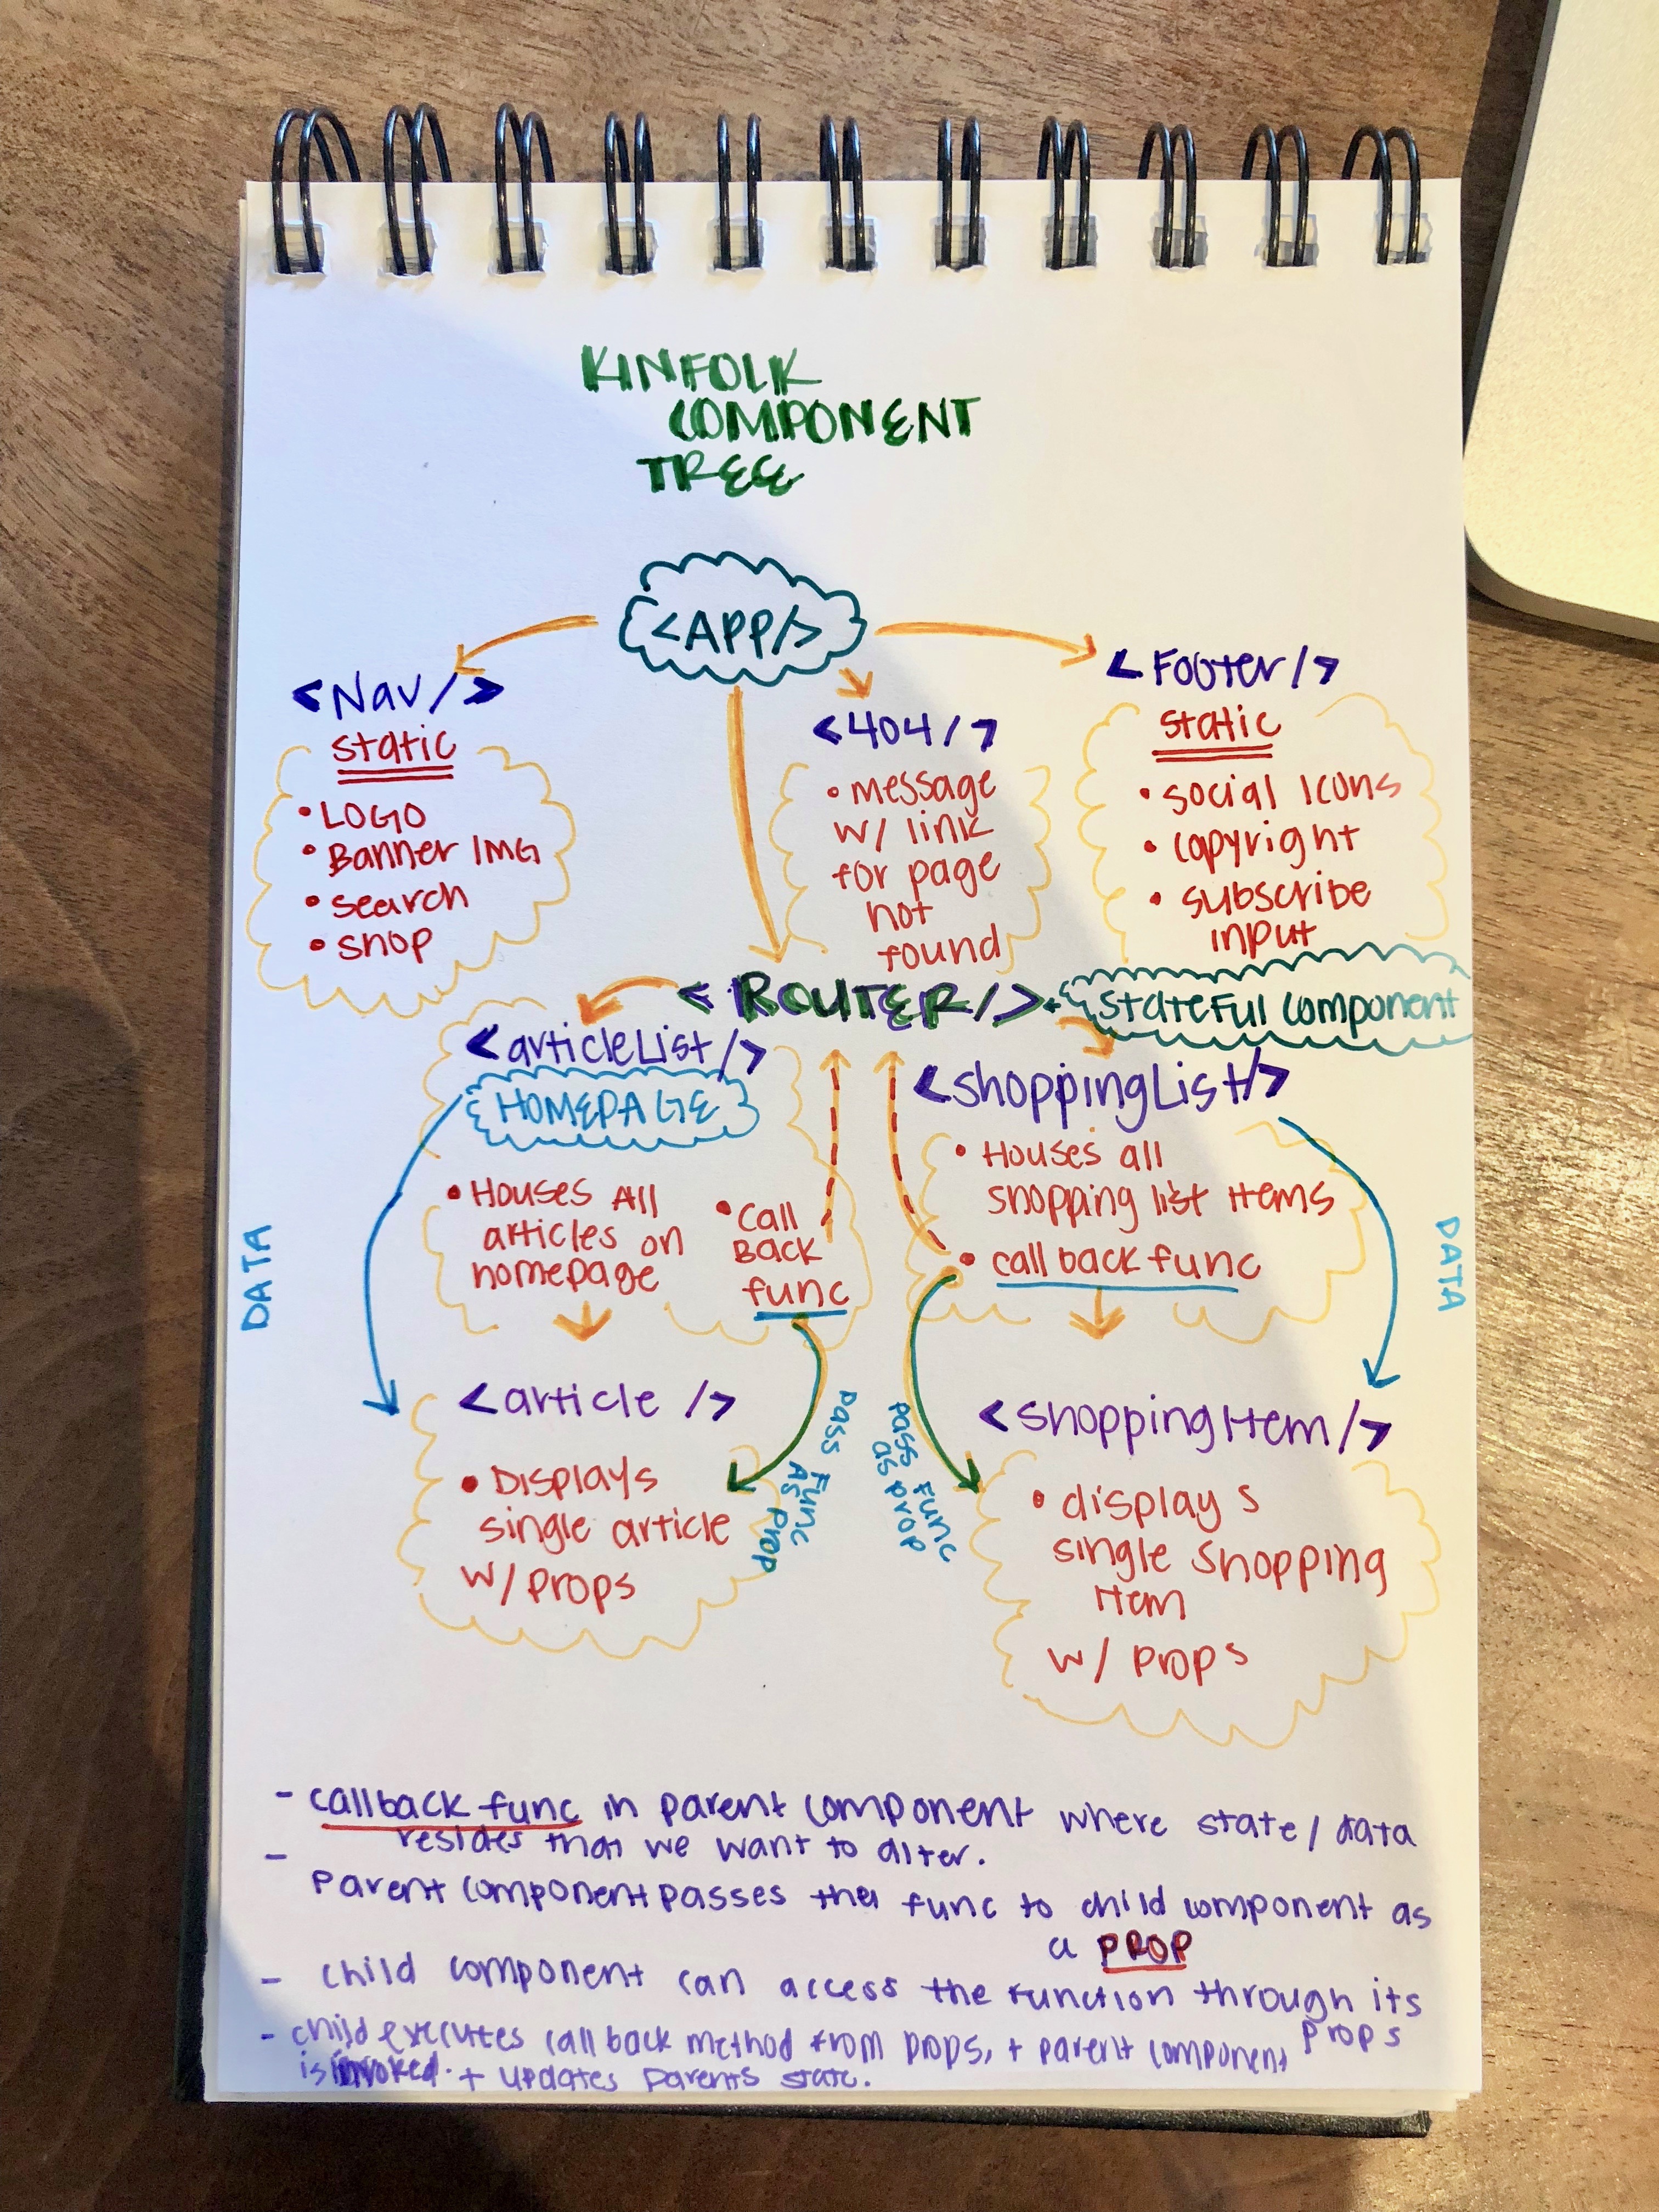 KINFOLK
COMPONENT
TREE
<APP/>
<Nav/>
static
• LOGO
• Banner IMG
• search
• shop
<404/>
• message
w/ link
for page
not
found
<Footer/>
static
• social Icons
• copyright
• subscribe
input
<ROUTER/>
stateful component
<articleList/>
HOMEPAGE
• Houses All
articles on
homepage
• call
Back
func
<shoppingList/>
• Houses all
shopping list items
• call back func
DATA
DATA
<article />
• Displays
single article
w/ props
pass Func
As Prop
pass func
as prop
<shoppingItem/>
• displays
single shopping
item
w/ props
- callback func in parent component where state/data
resides that we want to alter.
- parent component passes the func to child component as
a PROP
- child component can access the function through its
props
- child executes call back method from props, + parent component
is invoked. + updates parents state.